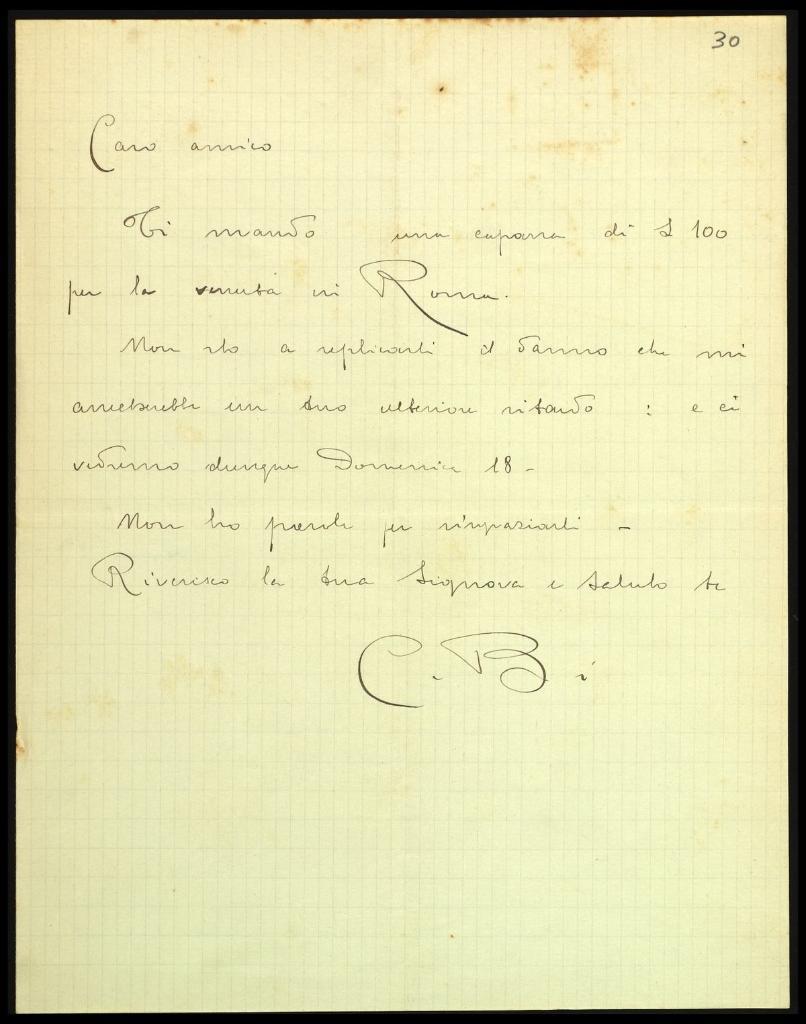 30
Caro amico
Ti mando una caparra di £ 100
per la venuta in Roma.
Non sto a replicarti il danno che mi
arrecherebbe un tuo ulteriore ritardo : e ci
vedremo dunque Domenica 18 -
Non ho parole per ringraziarti -
Riverisco la tua Signora e saluto te
C. B. i